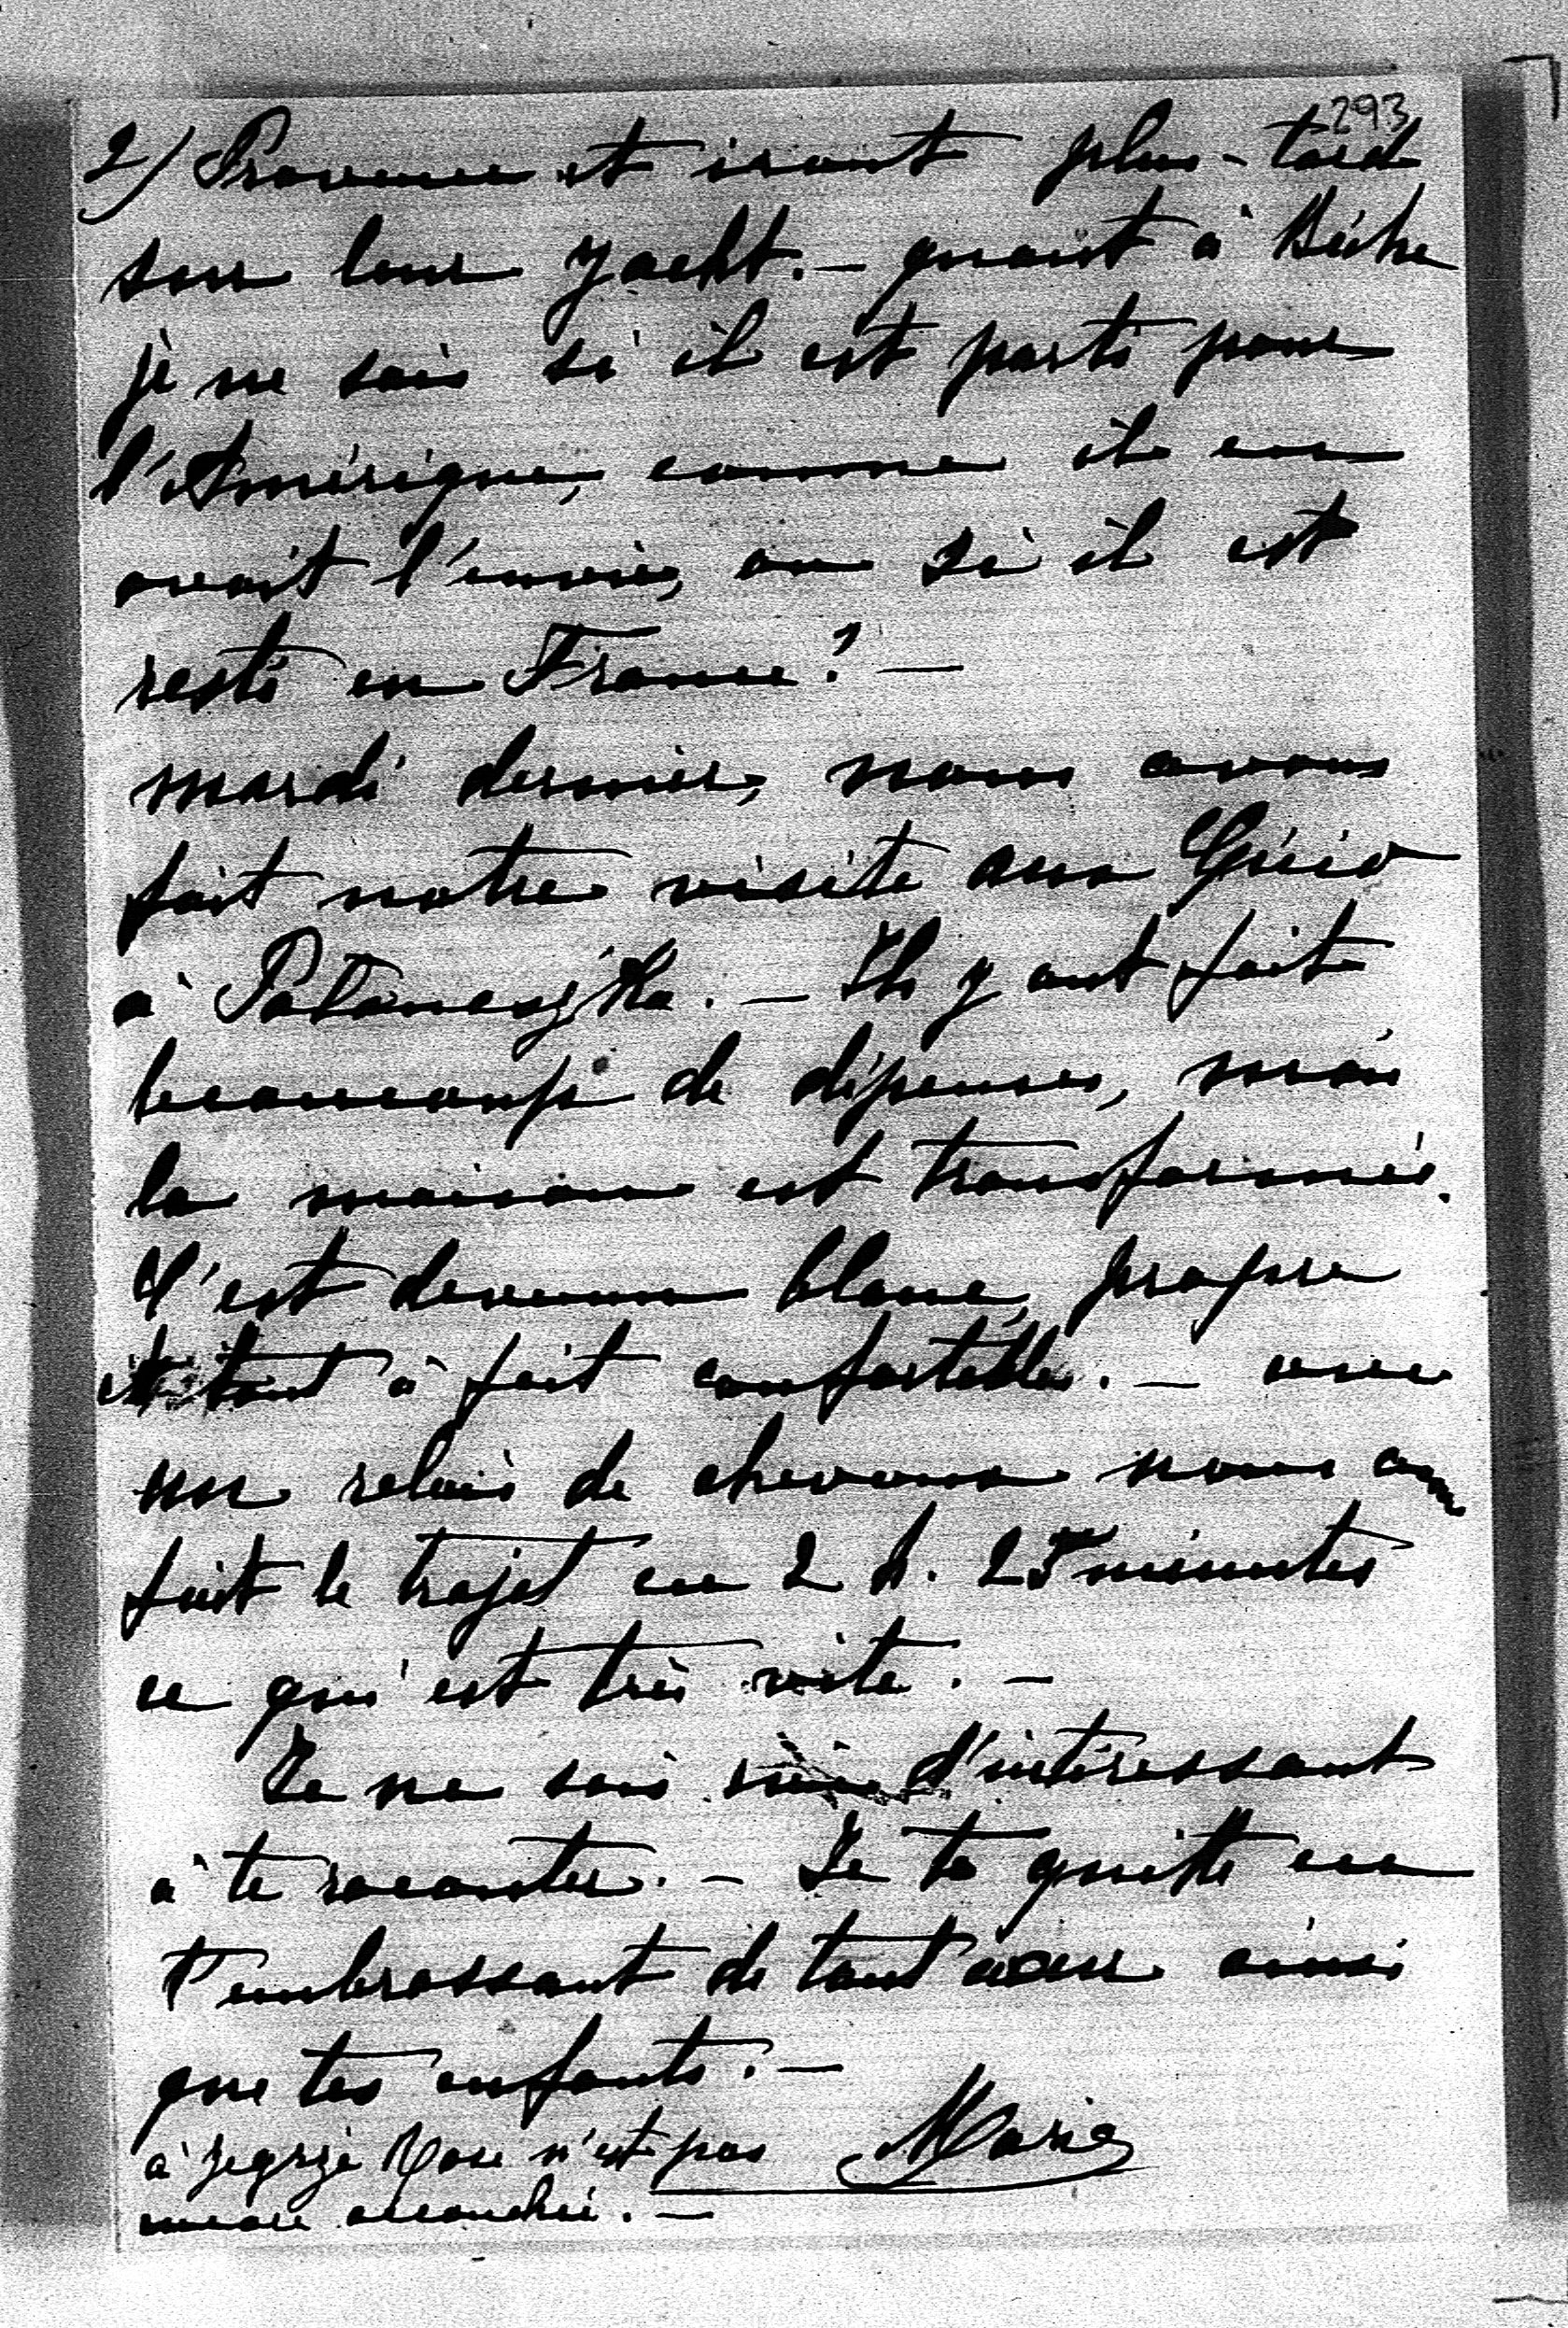 293
2/ Provence et iront plus-tard
sur leur yacht. — quant à
je ne sais si il est parti pour
l'Amérique, comme il en
avait l'envie, ou si il est
resté en France? —
mardi dernier, nous avons
fait notre visite aux Guido
à — Ils y ont fait
beaucoup de dépenses, mais
la maison est transformée.
C'est devenu blanc, propre
et tout à fait confortable. — avec
un relais de chevaux nous avons
fait le trajet en 2 h. 25 minutes
ce qui est très vite. —
Je ne sais rien d'intéressant
à te raconter. — Je te quitte en
t'embrassant de tout cœur ainsi
que tes enfants. —
Marie
à Zegrze Rose n'est pas
encore accouchée. —